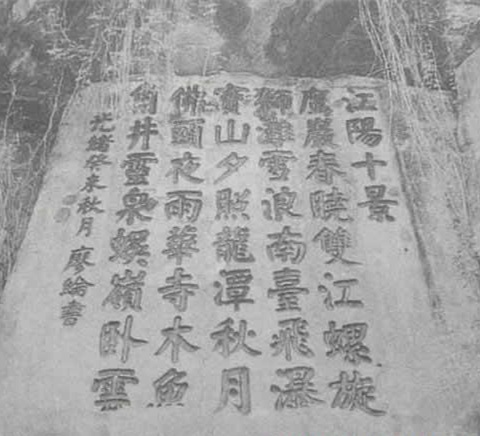 江陽十景
巖春曉雙江螺旋
獅灘雪浪南臺飛瀑
寶山夕照龍潭秋月
佛頭夜雨華寺木魚
井靈泉嶺卧雲
光緒癸未秋月廖綸書